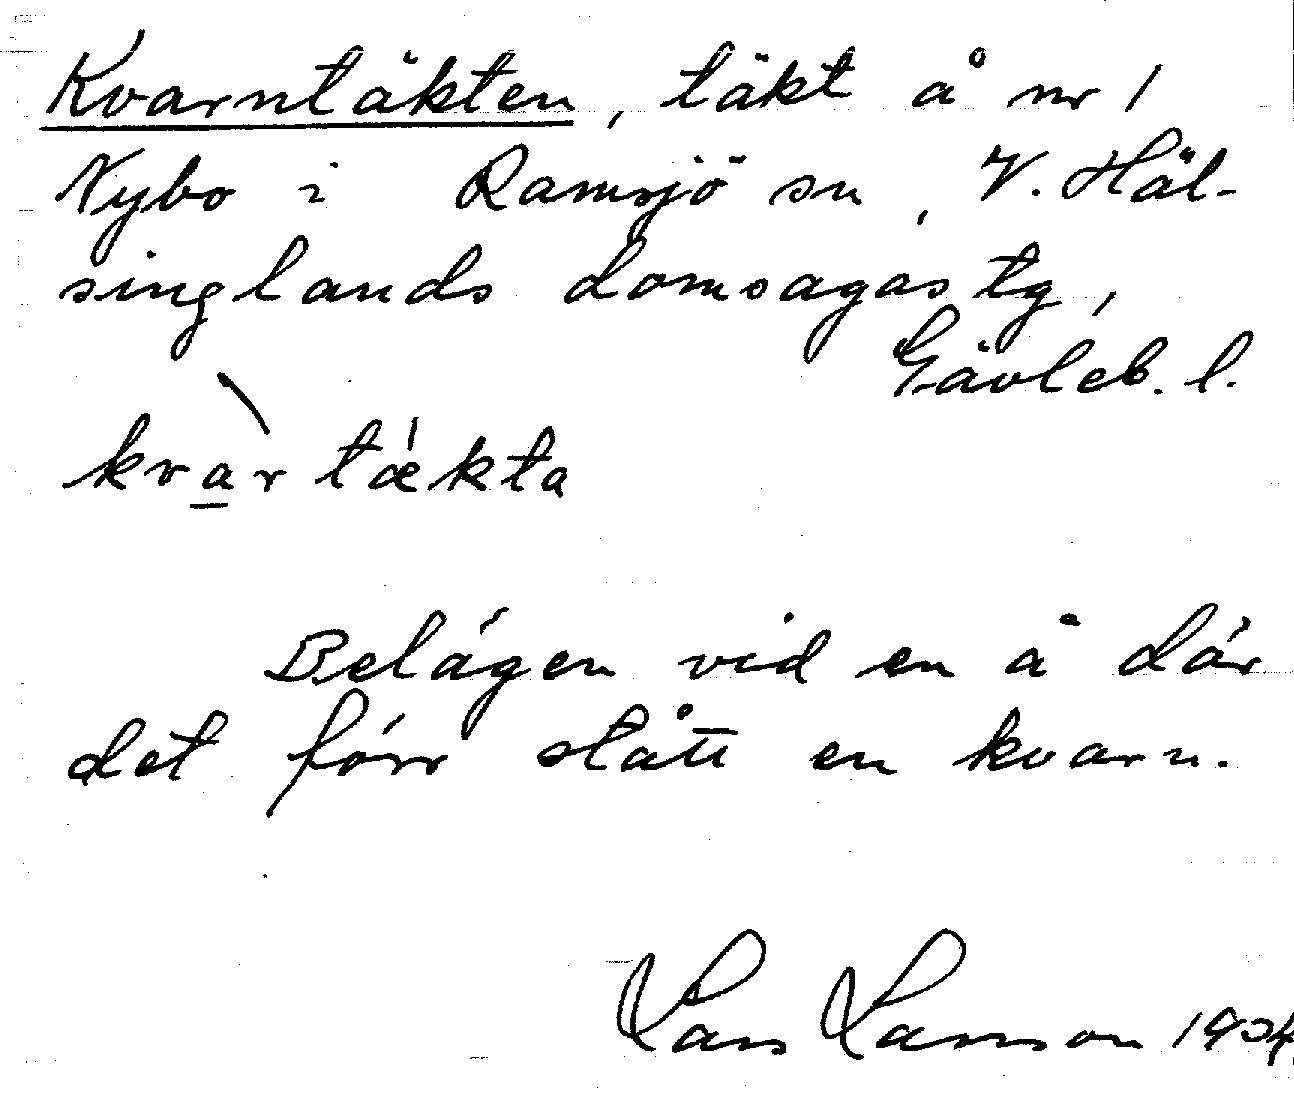 Kvarntäkten, täkt å nr 1
Nybo i Ramsjö sn, V. Häl-
singlands domsagas tg,
Gävleb. l.
kvàrtǽkta
Belägen vid en å där
det förr stått en kvarn.
Lars Larsson 1934